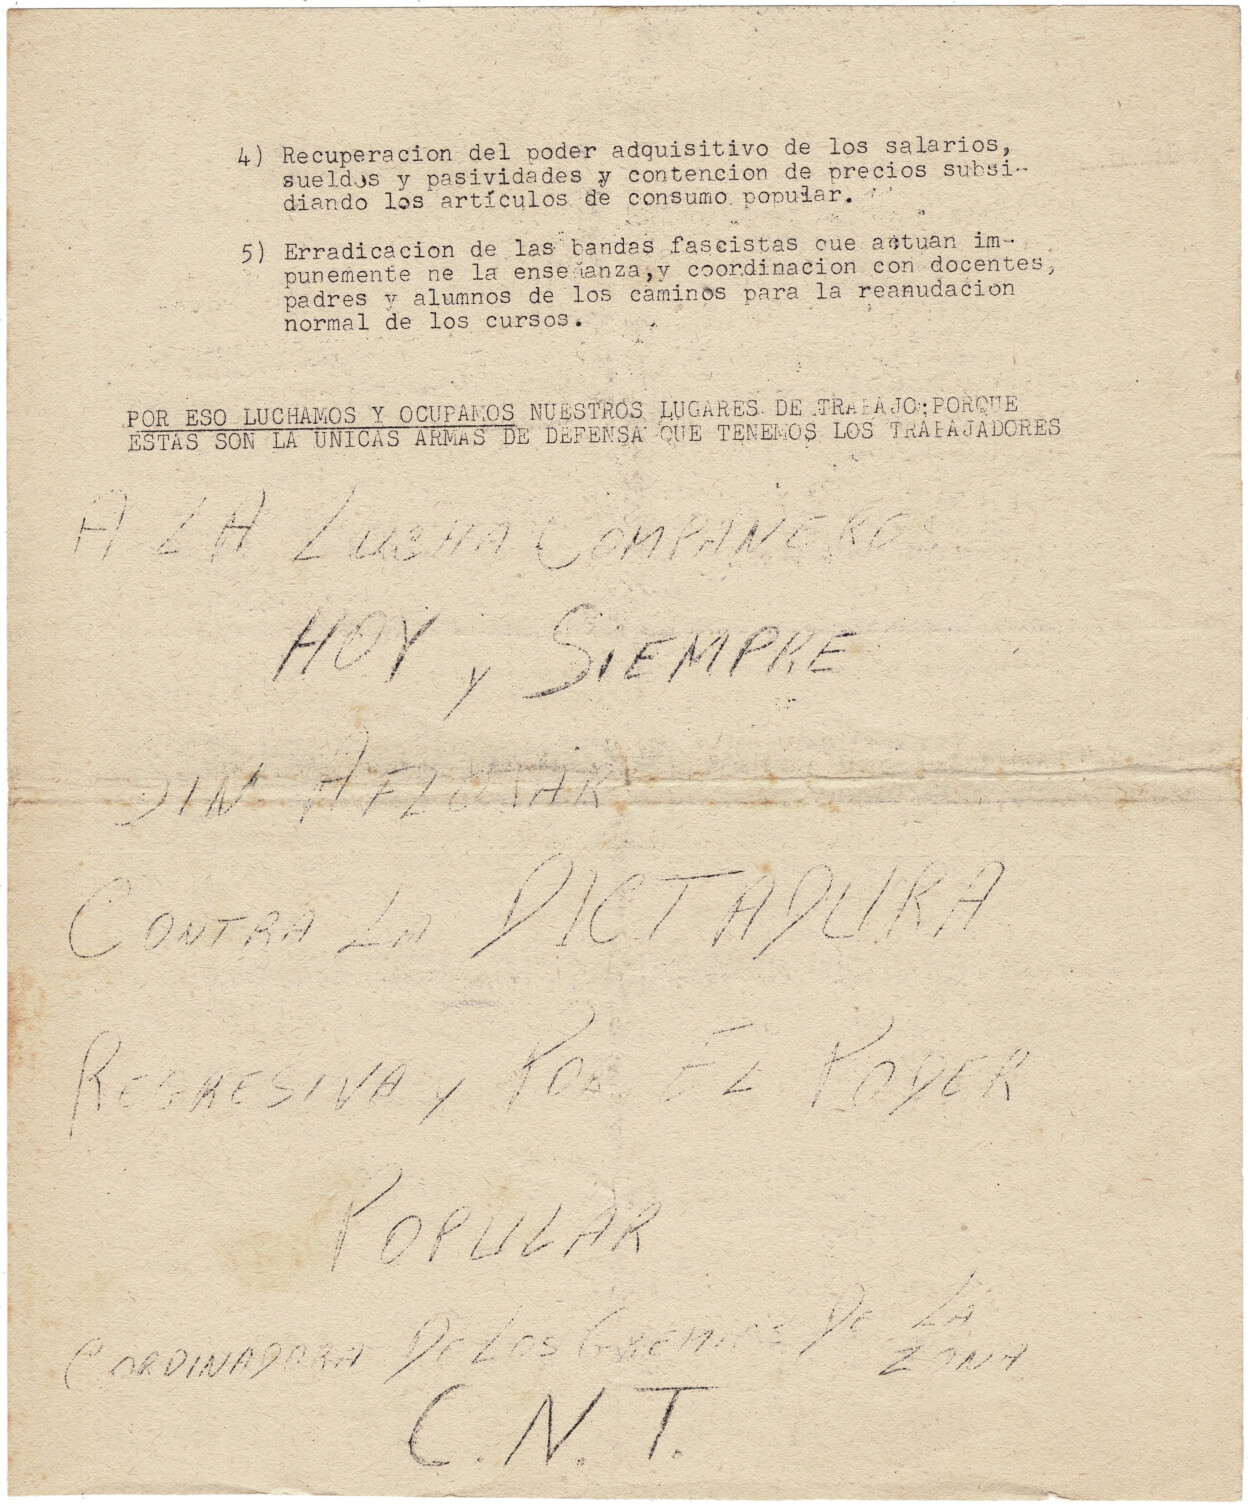 4) Recuperacion del poder adquisitivo de los salarios,
sueldos y pasividades y contencion de precios subsi-
diando los artículos de consumo popular.
5) Erradicacion de las bandas fascistas que actuan im-
punemente ne la enseñanza,y coordinacion con docentes,
padres y alumnos de los caminos para la reanudacion
normal de los cursos.
POR ESO LUCHAMOS Y OCUPAMOS NUESTROS LUGARES DE TRABAJO;PORQUE
ESTAS SON LA UNICAS ARMAS DE DEFENSA QUE TENEMOS LOS TRABAJADORES
A LA LUCHA COMPAÑEROS
HOY y SIEMPRE
SIN AFLOJAR
CONTRA LA DICTADURA
REGRESIVA y POR EL PODER
POPULAR
CORDINADORA DE LOS GREMIOS DE LA
ZONA
C.N.T.